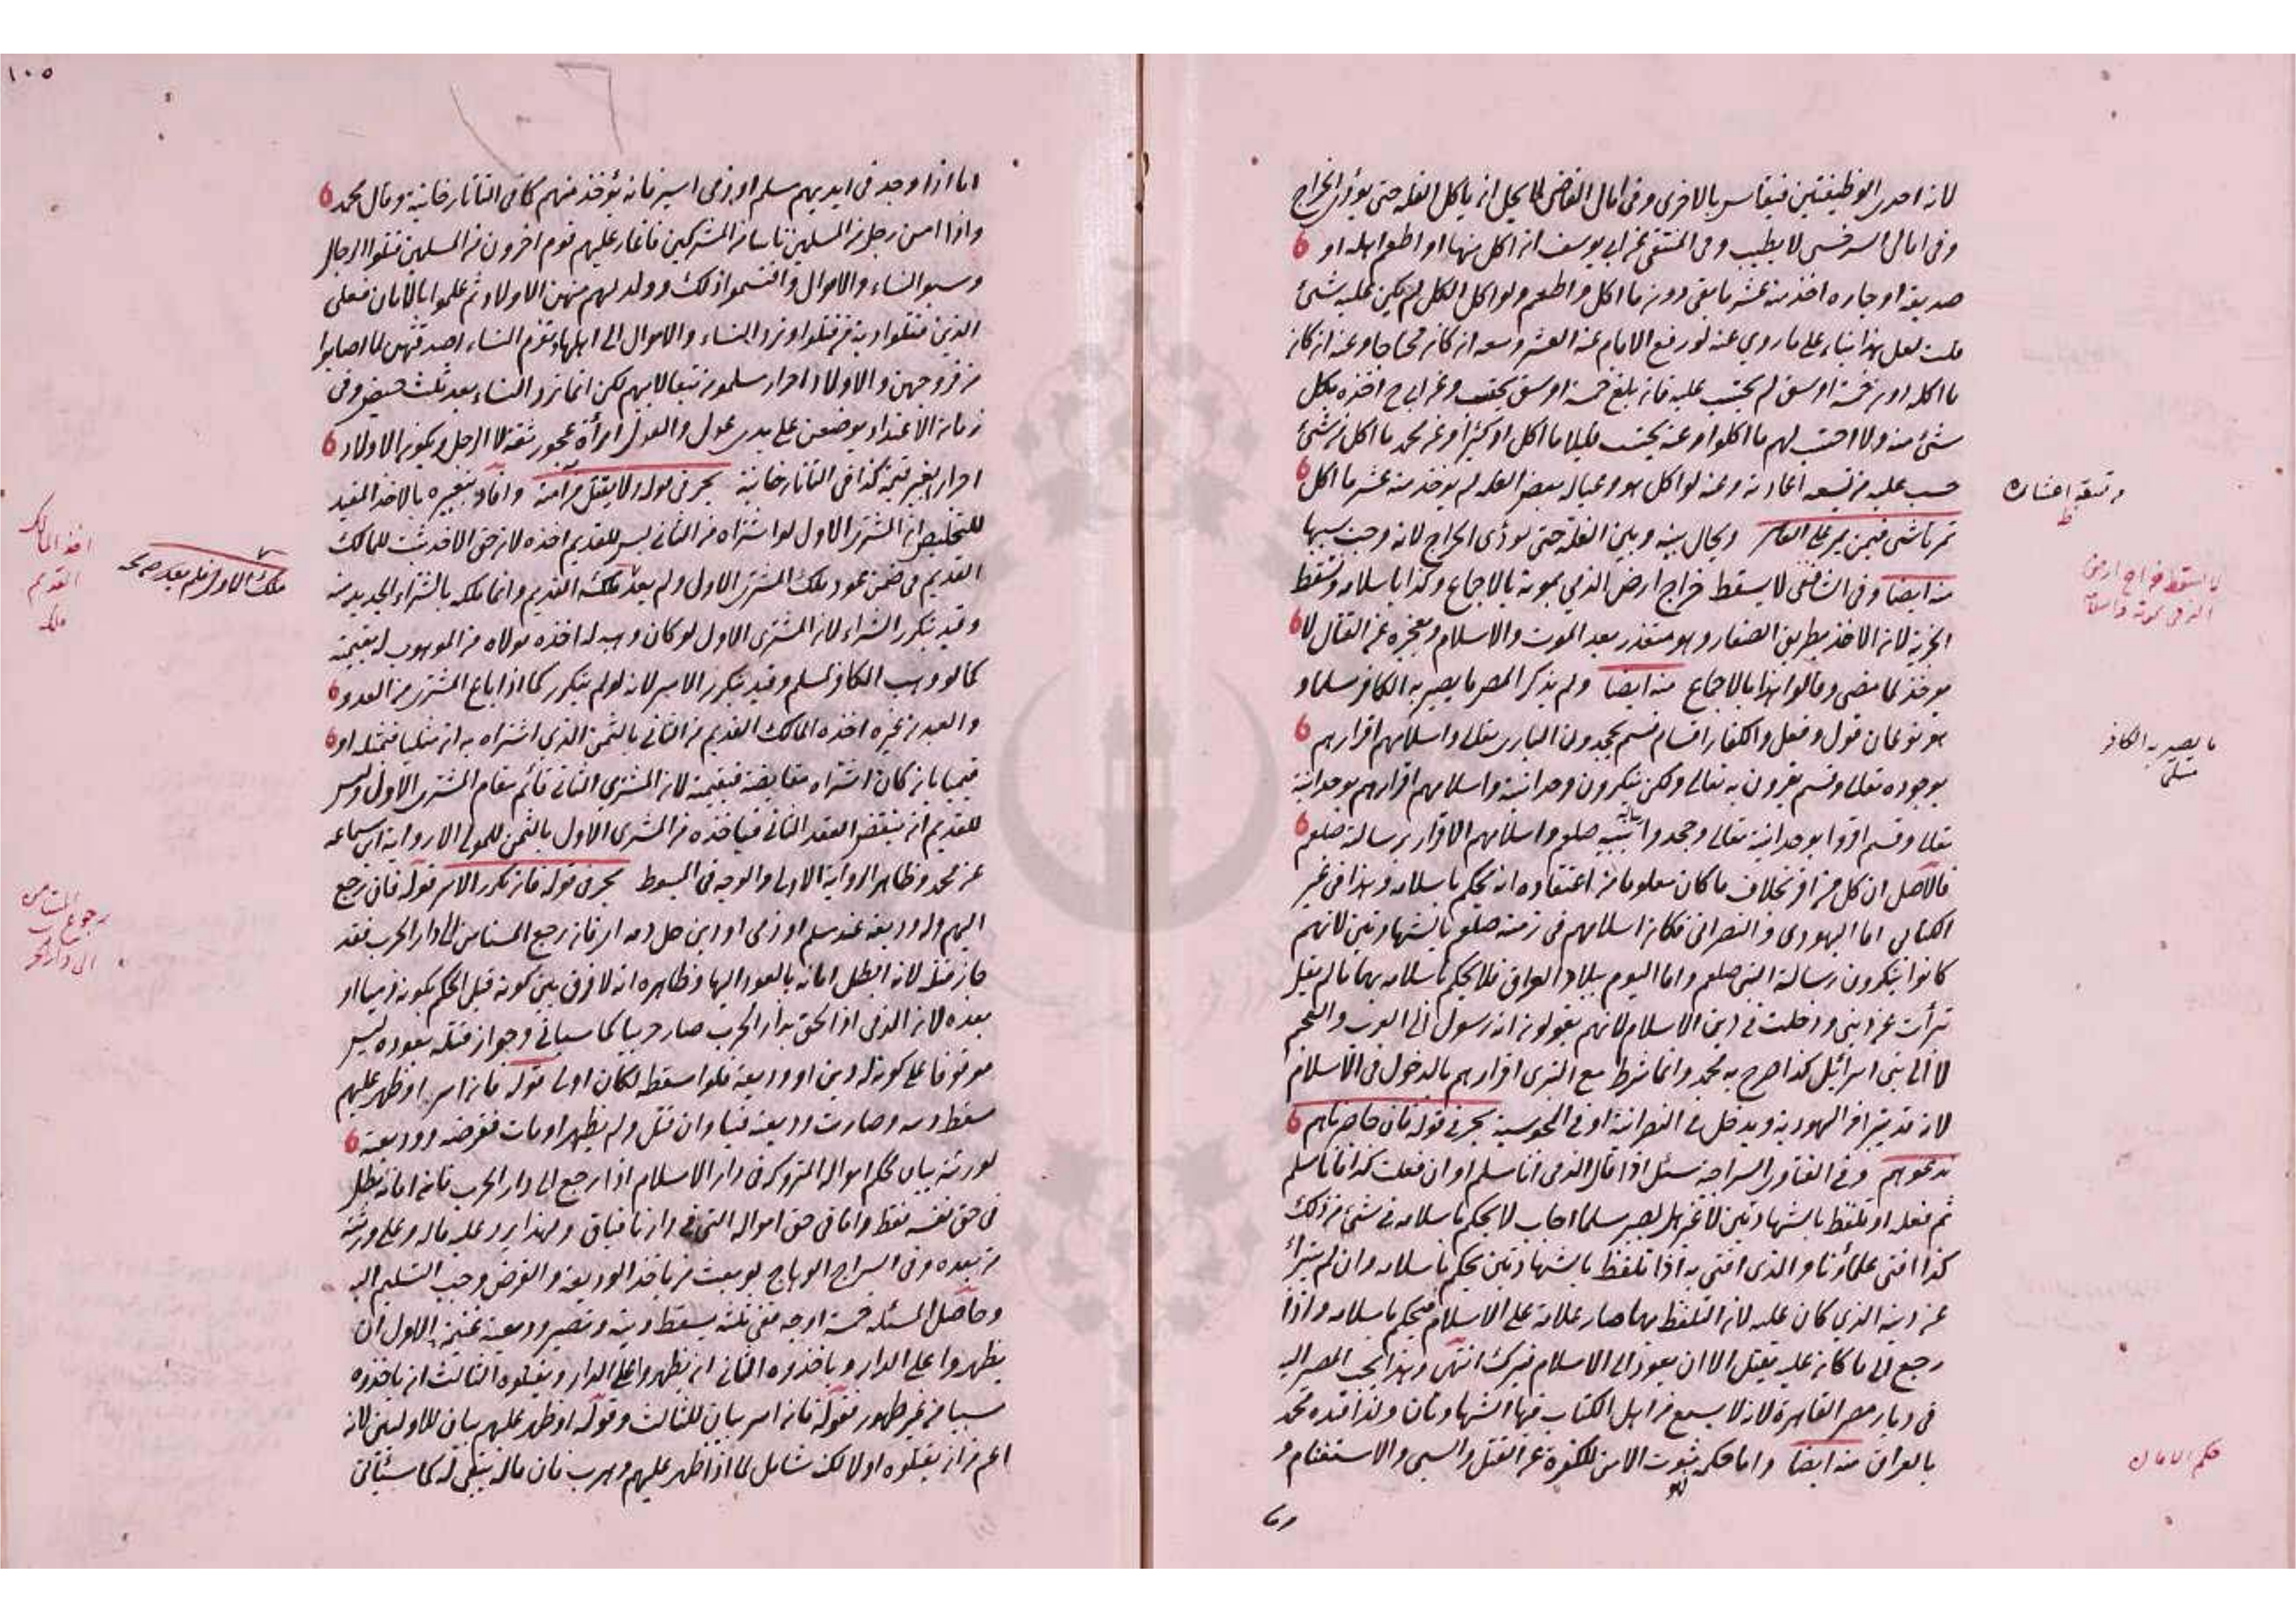 لانه احدى الوظيفتين فيقاس بالاخرى وفى امالى القاضى لا يحل ان ياكل الغلة حتى يؤدى الخراج
وفى امالى السرخسى لا يطيب وفى المنتقى عن ابى يوسف ان اكل منها او اطعم اهله او
صديقه او جاره اخذ منه عشر ما بقى دون ما اكل واطعم ولو اكل الكل لم يكن عليه شئ
قلت لعل هذا بناء على ما روي عنه لو رفع الامام عنه العشر وسعه ان كان محتاجا وعنه ان كان
ما اكله دون خمسة اوسق لم يحتسب عليه فان بلغ خمسة اوسق يحتسب وعن ابى ح اخذه بكل
شئ منه ولا احتسب لهم ما اكلوا وعنه يحتسب قليلا ما اكل او كثيرا وعن محمد ما اكل من شئ
حسب عليه من تسعة اعشاره وعنه لو اكل هو وعياله بعض الغلة لم يوخذ منه عشر ما اكل
تمرتاشى فيمن يمر على العاشر ويحال بينه وبين الغلة حتى يؤدى الخراج لانه وجب بسببها
منه ايضا وفى الشافى لا يسقط خراج ارض الذمي بموته بالاجماع وكذا باسلامه وتسقط
الجزية لان الاخذ بطريق الصغار وهو متعذر بعد الموت والاسلام وبعجزه عن القتال لا
يوخذ لما مضى وقالوا هذا بالاجماع منه ايضا ولم يذكر المص ما يصير به الكافر مسلما و
هو نوعان قول وفعل والكفار اقسام قسم يجحدون البارى تعالى واسلامهم اقرارهم
بوجوده تعالى وقسم يقرون به تعالى ولكن ينكرون وحدانيته واسلامهم اقرارهم بوحدانيته
تعالى وقسم اقروا بوحدانيته تعالى وجحدوا رسالة نبيه صلعم واسلامهم الاقرار برسالته صلعم
فالاصل ان كل من اقر بخلاف ما كان معلوما من اعتقاده انه يحكم باسلامه وهذا فى غير
الكتابى اما اليهودى والنصرانى فكان اسلامهم فى زمنه صلعم بالشهادتين لانهم
كانوا ينكرون رسالة النبى صلعم واما اليوم ببلاد العراق فلا يحكم باسلامه بهما ما لم يقل
تبرأت عن دينى ودخلت فى دين الاسلام لانهم يقولون انه رسول الى العرب والعجم
لا الى بنى اسرائيل كذا صرح به محمد وانما شرط مع التبرى اقرارهم بالدخول فى الاسلام
لانه قد يتبرأ من اليهودية ويدخل فى النصرانية او فى المجوسية بحر فى قوله فان حاصرناهم
ندعوهم وفى الفتاوى السراجية سئل اذا قال الذمى انا مسلم او ان فعلت كذا فانا مسلم
ثم فعله او تلفظ بالشهادتين لا غير هل يصير مسلما اجاب لا يحكم باسلامه فى شئ من ذلك
كذا افتى علماؤنا والذى افتى به اذا تلفظ بالشهادتين يحكم باسلامه وان لم يتبرأ
عن دينه الذي كان عليه لان التلفظ بهما صار علامة على الاسلام فيحكم باسلامه واذا
رجع الى ما كان عليه يقتل الا ان يعود الى الاسلام فيترك انتهى وهذا يجب المصير اليه
فى ديار مصر القاهرة لانه لا يسمع من اهل الكتاب فيها الشهادتان ولذا قيده محمد
بالعراق منه ايضا واما حكمه فهو ثبوت الامن للكفرة عن القتل والسبى والاستغنام و
واما
من تسعة اعشاره
ط
لا يسقط خراج ارض
الذمى بموته واسلامه
ما يصير به الكافر
مسلما
حكم الامان
١٠٥
اما اذا وجد فى ايديهم مسلم او ذمى اسير فانه يؤخذ منهم كما فى التاتارخانية وقال محمد
واذا امن رجل من المسلمين ناسا من المشركين فاغار عليهم قوم اخرون من المسلمين قتلوا الرجال
وسبوا النساء والاموال واقتسموا ذلك وولد لهم منهن الاولاد ثم علموا بالامان فعلى
الذين قتلوا دية من قتلوا وترد النساء والاموال الى اهلها وتغرم النساء اصدقتهن لما اصابوا
من فروجهن والاولاد احرار مسلمون تبعا لابيهم لكن انما ترد النساء بعد ثلث حيض وفى
زمان الاعتداد يوضعن على يدى عدل والعدل امرأة عجوز ثقة لا الرجل ويكون الاولاد
احرارا بغير قيمة كذا فى التاتارخانية بحر فى قوله ولا يقتل من آمنه وافاد بتعبيره بالاخذ المفيد
للتخليص ان المشترى الاول لو اشتراه من الثانى ليس للقديم اخذه لان حق الاخذ ثبت للمالك
القديم فى ضمن عود ملك المشترى الاول ولم يعد ملكه القديم وانما ملكه بالشراء الجديد منه
وقيد بتكرر الشراء لان المشترى الاول لو كان وهبه له اخذه مولاه من الموهوب له بقيمته
كما لو وهبه الكافر لمسلم وقيد بتكرر الاسر لانه لو لم يتكرر كما اذا باع المشترى من العدو
والعبد من غيره اخذه المالك القديم من الثانى بالثمن الذى اشتراه به ان مثليا فمثله او
قيميا بان كان اشتراه مقايضة فبقيمته لان المشترى الثانى قائم مقام المشترى الاول وليس
للقديم ان ينقض العقد الثانى فياخذه من المشترى الاول بالثمن للمولى الا رواية ابن سماعه
عن محمد وظاهر الرواية الاولى والوجه فى المبسوط بحر فى قوله فان تكرر الاسر قوله فان رجع
اليهم وله وديعة عند مسلم او ذمى او دين حل دمه اى فان رجع المستامن الى دار الحرب فقد
جاز قتله لانه ابطل امانه بالعود اليها وظاهره انه لا فرق بين كونه قبل الحكم بكونه ذميا او
بعده لان الذمى اذا لحق بدار الحرب صار حربيا كما سياتى وجواز قتله بعوده ليس
موقوفا على كونه له دين او وديعة فلو اسقطه لكان اولى قوله فان اسر او ظهر عليهم
سقط دينه وصارت وديعته فيئا وان قتل ولم يظهر او مات فقرضه ووديعته
لورثته بيان لحكم امواله المتروكة فى دار الاسلام اذا رجع الى دار الحرب فانه امانه بطل
فى حق نفسه فقط واما فى حق امواله التى فى دارنا فباق ولهذا يرد عليه ماله وعلى ورثته
من بعده وفى السراج الوهاج لو بعث من ياخذ الوديعة والقرض وجب التسليم اليه
وحاصل المسئلة خمسة اوجه ففى ثلثة يسقط دينه وتصير وديعته غنيمة الاول ان
يظهروا على الدار وياخذوه الثانى ان يظهروا على الدار ويقتلوه الثالث ان ياخذوه
سبيا من غير ظهور فقوله فان اسر بيان للثالث وقوله او ظهر عليهم بيان للاولين لانه
اعم من ان يقتلوه او لا لكنه شامل لما اذا ظهر عليهم وهرب فان ماله يبقى له كما سيأتى
ملك الاول فلم يعد صح
اخذ المالك
القديم
ملكه
رجوع المستامن
الى دار الحرب